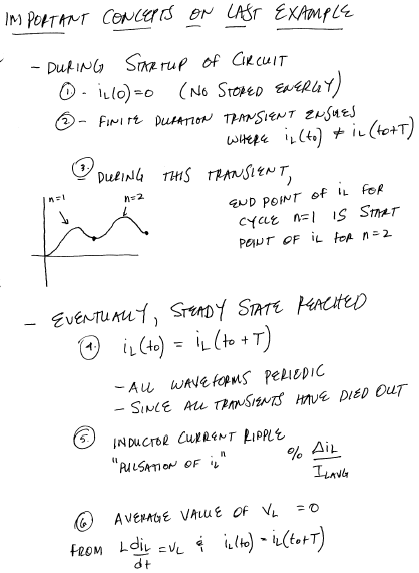 IMPORTANT CONCEPTS ON LAST EXAMPLE
- DURING STARTUP OF CIRCUIT
① - iL(0)=0 (NO STORED ENERGY)
② - FINITE DURATION TRANSIENT ENSUES
WHERE iL(to) ≠ iL(to+T)
③ DURING THIS TRANSIENT,
END POINT OF iL FOR
CYCLE n=1 IS START
POINT OF iL FOR n=2
n=1 n=2
- EVENTUALLY, STEADY STATE REACHED
④. iL(to) = iL(to+T)
- ALL WAVEFORMS PERIODIC
- SINCE ALL TRANSIENTS HAVE DIED OUT
⑤. INDUCTOR CURRENT RIPPLE
"PULSATION OF iL"
% ΔiL / ILAVG
⑥ AVERAGE VALUE OF VL = 0
FROM L diL/dt = VL & iL(to) = iL(to+T)